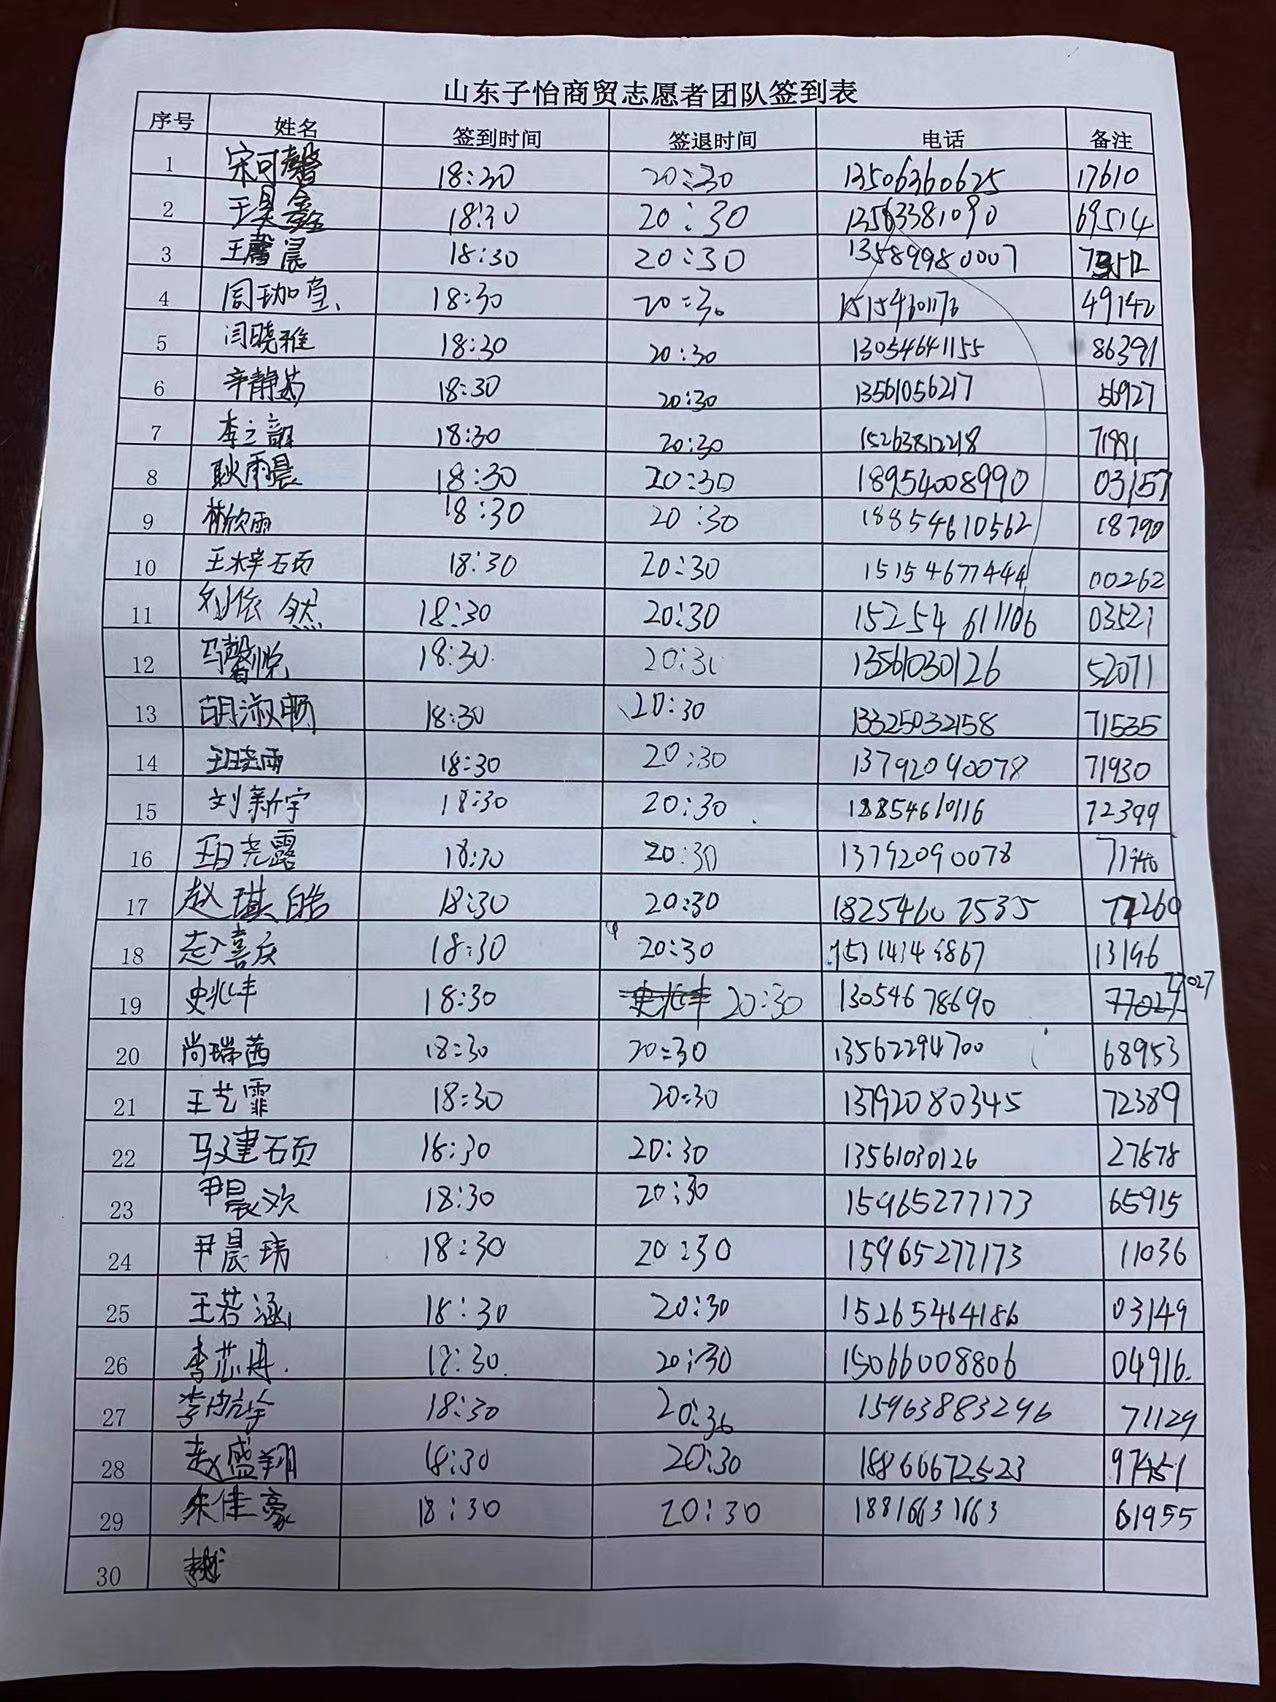 山东子怡商贸志愿者团队签到表
序号 姓名 签到时间 签退时间 电话 备注
1 宋可馨 18:30 20:30 13506360625 17610
2 王昊鑫 18:30 20:30 13563381090 69514
3 王馨晨 18:30 20:30 13589980007
4 周珈莹 18:30 20:30 15154601176 49142
5 闫晓雅 18:30 20:30 13054641155 86391
6 辛静茹 18:30 20:30 13561056217 56927
7 李之韵 18:30 20:30 15263812218 71991
8 耿雨晨 18:30 20:30 18954008990 03157
9 林欣雨 18:30 20:30 18854610562 18790
10 王梓硕 18:30 20:30 15154677444 00262
11 刘依然 18:30 20:30 15254611106 03521
12 马馨悦 18:30 20:30 13561030126 52071
13 胡淑畅 18:30 20:30 13325032158 71535
14 王晓雨 18:30 20:30 13792090078 71930
15 刘新宇 18:30 20:30 18854610116 72399
16 王晓露 18:30 20:30 13792090078 71940
17 赵琪皓 18:30 20:30 18254607535 77260
18 赵喜庆 18:30 20:30 13146
19 史兆丰 18:30 20:30 13054678690 77027
20 尚瑞茜 18:30 20:30 13562294700 68953
21 王艺霏 18:30 20:30 13792080345 72389
22 马建硕 18:30 20:30 13561030126 27878
23 尹晨欢 18:30 20:30 15965277173 65915
24 尹晨玮 18:30 20:30 15965277173 11036
25 王若涵 18:30 20:30 15265464186 03149
26 李芯冉 18:30 20:30 15066008806 04916
27 李航宇 18:30 20:30 15963883296 71129
28 赵盛翔 18:30 20:30 18866672523 97451
29 朱佳豪 18:30 20:30 18816631663 61955
30